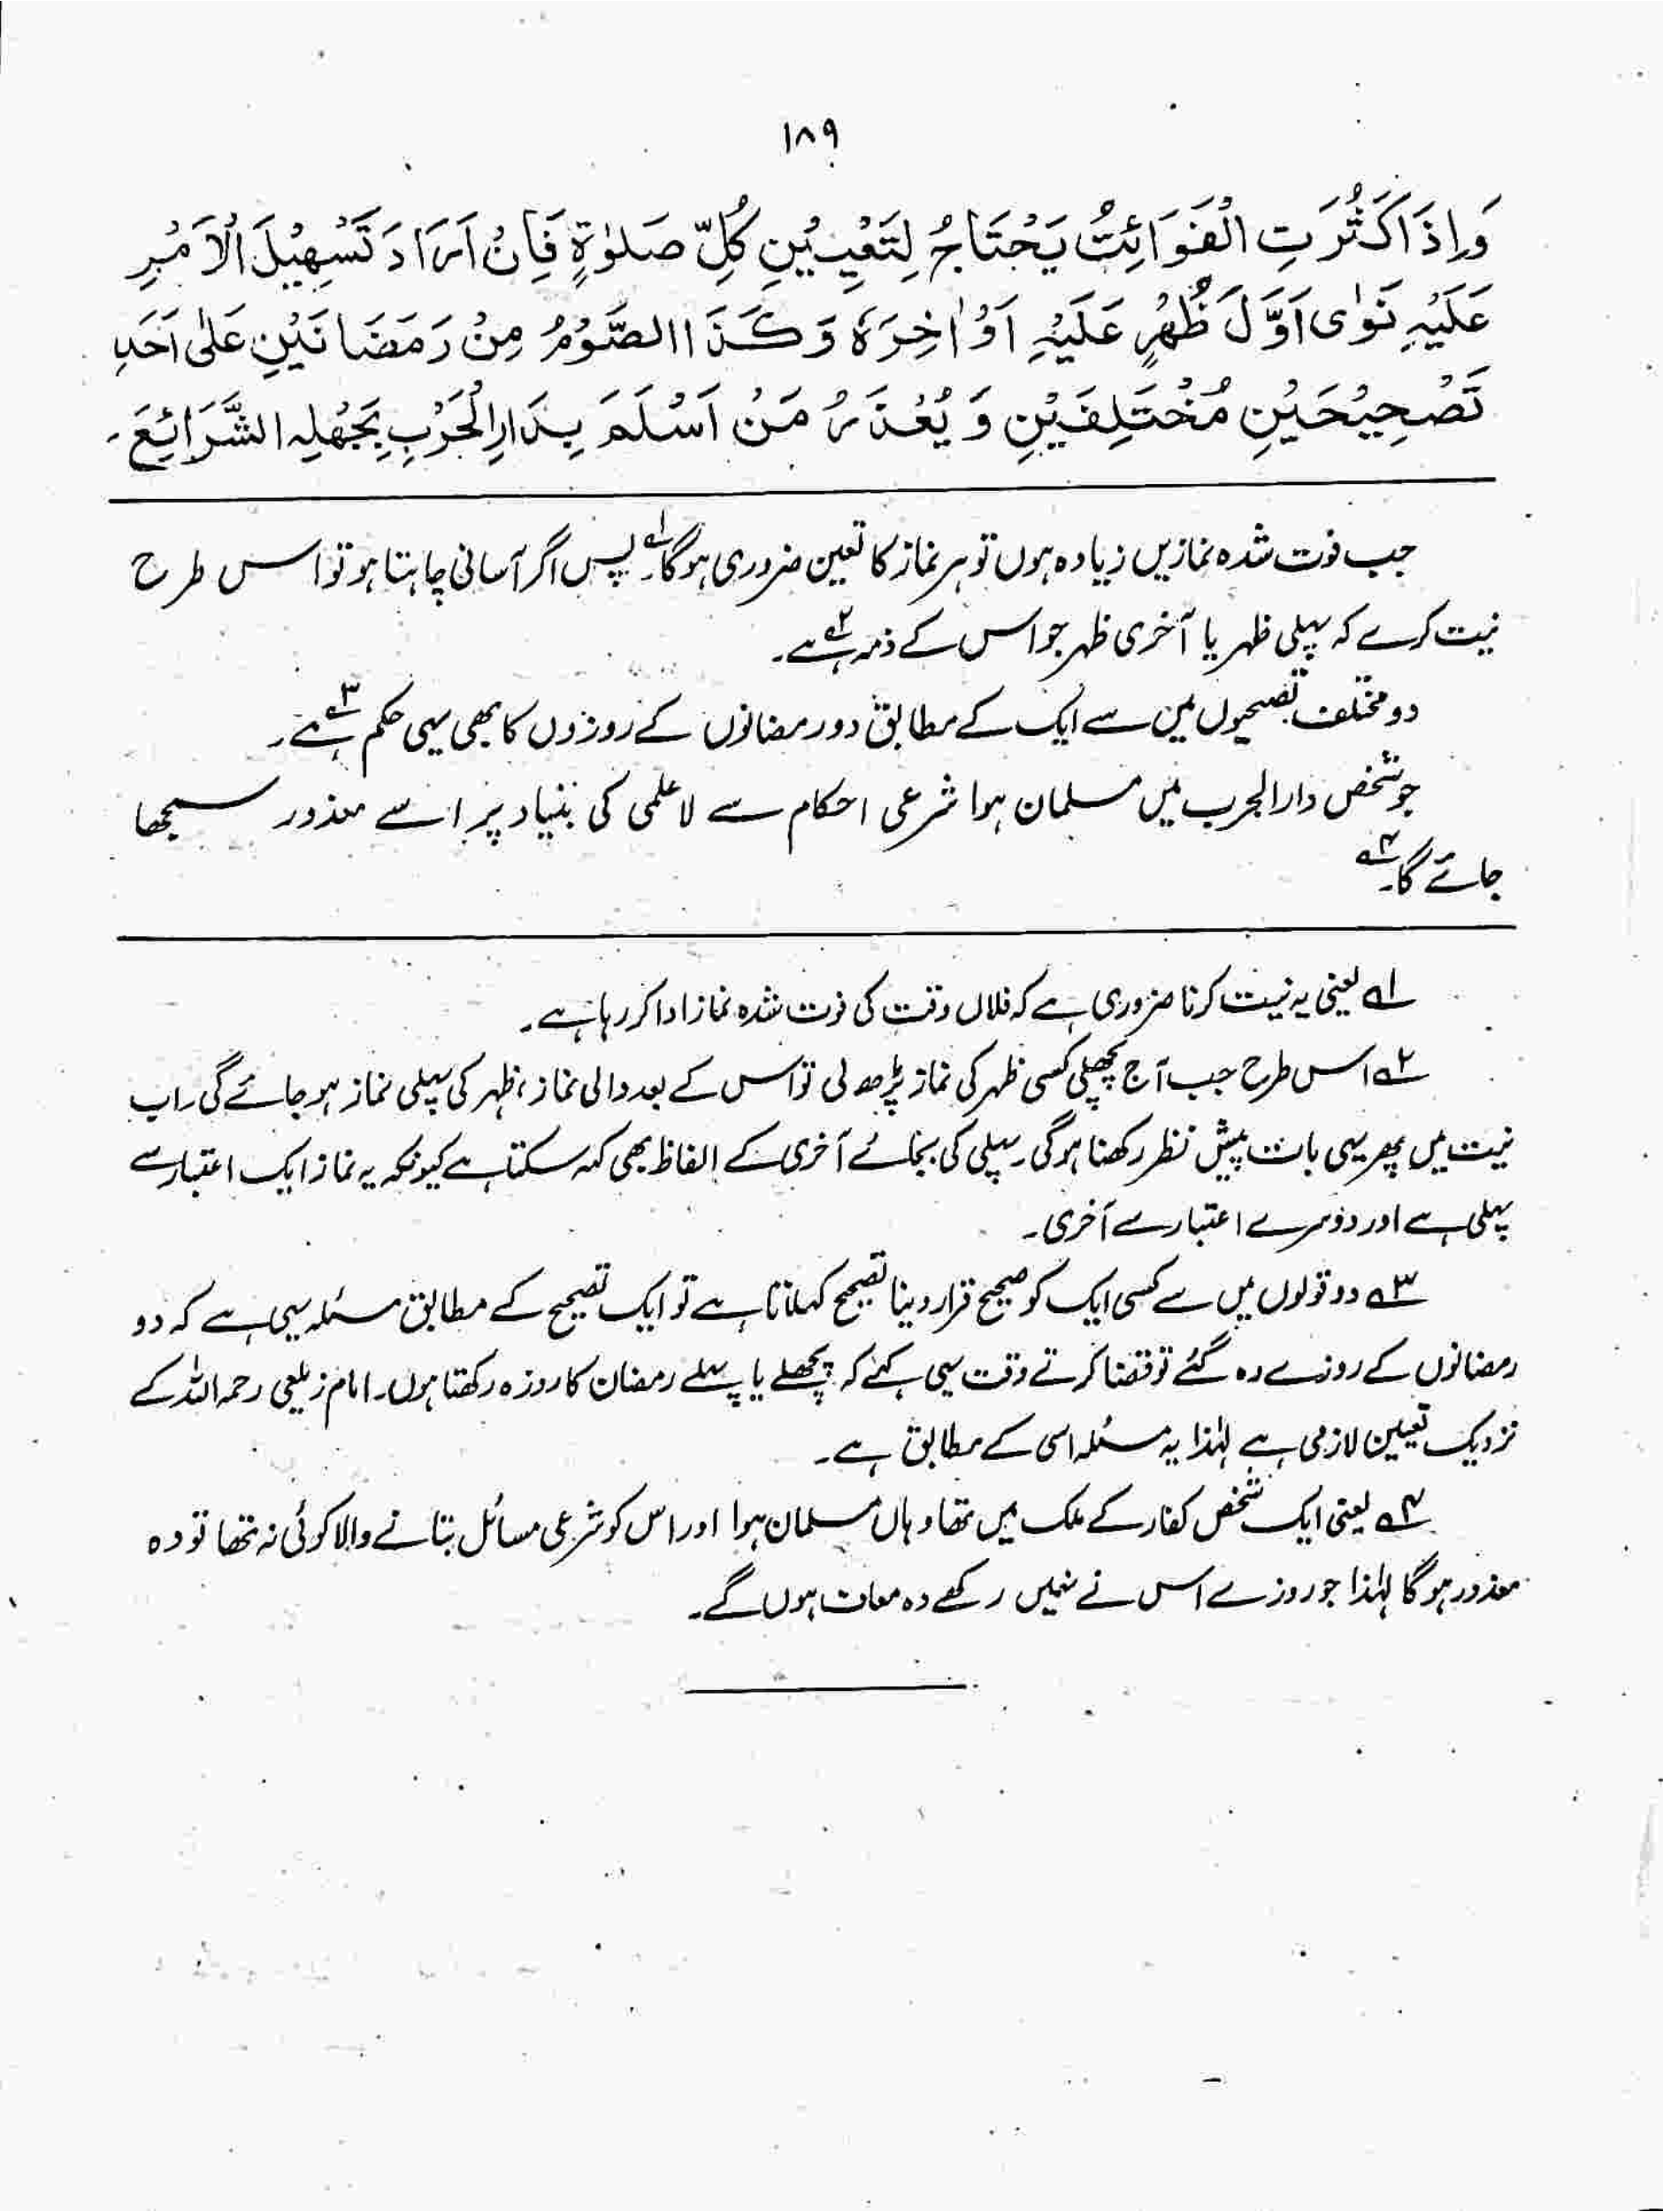 ۱۸۹
وَإِذَا كَثُرَتِ الْفَوَائِتُ يَحْتَاجُ لِتَعْيِيْنِ كُلِّ صَلوٰةٍ فَإِنْ اَرَادَ تَسْهِيْلَ الْاَمْرِ
عَلَيْهِ نَوٰى اَوَّلَ ظُهْرٍ عَلَيْهِ اَوْ اٰخِرَهُ وَكَذَا الصَّوْمُ مِنْ رَمَضَانَيْنِ عَلٰى اَحَدِ
تَصْحِيْحَيْنِ مُخْتَلِفَيْنِ وَيُعْذَرُ مَنْ اَسْلَمَ بِدَارِ الْحَرْبِ بِجَهْلِهِ الشَّرَائِعَ۔
جب فوت شدہ نمازیں زیادہ ہوں تو ہر نماز کا تعین ضروری ہوگا۔۱ پس اگر آسانی چاہتا ہو تو اس طرح
نیت کرے کہ پہلی ظہر یا آخری ظہر جو اس کے ذمہ ہے۲۔
دو مختلف تصحیحوں میں سے ایک کے مطابق دو رمضانوں کے روزوں کا بھی یہی حکم ہے۳۔
جو شخص دارالحرب میں مسلمان ہوا شرعی احکام سے لاعلمی کی بنیاد پر اسے معذور سمجھا
جائے گا۔۴
۱؎ یعنی یہ نیت کرنا ضروری ہے کہ فلاں وقت کی فوت شدہ نماز ادا کر رہا ہے۔
۲؎ اس طرح جب آج پچھلی کسی ظہر کی نماز پڑھ لی تو اس کے بعد والی نماز، ظہر کی پہلی نماز ہو جائے گی۔ اب
نیت میں پھر یہی بات پیش نظر رکھنا ہوگی۔ پہلی کی بجائے آخری کے الفاظ بھی کہہ سکتا ہے کیونکہ یہ نماز ایک اعتبار سے
پہلی ہے اور دوسرے اعتبار سے آخری۔
۳؎ دو قولوں میں سے کسی ایک کو صحیح قرار دینا تصحیح کہلاتا ہے تو ایک تصحیح کے مطابق مسئلہ یہی ہے کہ دو
رمضانوں کے روزے رہ گئے تو قضا کرتے وقت یہی کہے کہ پچھلے یا پہلے رمضان کا روزہ رکھتا ہوں۔ امام زیلعی رحمہ اللہ کے
نزدیک تعیین لازمی ہے لہٰذا یہ مسئلہ اسی کے مطابق ہے۔
۴؎ یعنی ایک شخص کفار کے ملک میں تھا وہاں مسلمان ہوا اور اس کو شرعی مسائل بتانے والا کوئی نہ تھا تو وہ
معذور ہوگا لہٰذا جو روزے اس نے نہیں رکھے وہ معاف ہوں گے۔